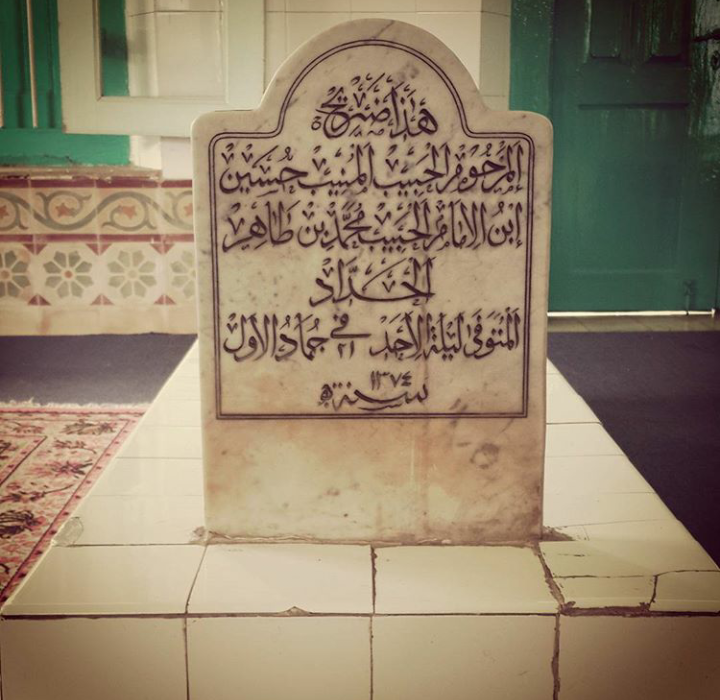 هَذَا ضَرِيْحُ
المَرْحُوْمُ الحَبِيْبُ المُنِيْبُ حُسَيْن
إبْنُ الاِمَامُ الحَبِيْبُ مُحَمَّدْ بِنْ طَاهِرْ
الحَدَّادْ
المُتَوَفَّى لَيْلَةُ الأَحَدْ ٢١ فى جُمَادُ الأوَلْ
سنة ١٣٧٤ ه